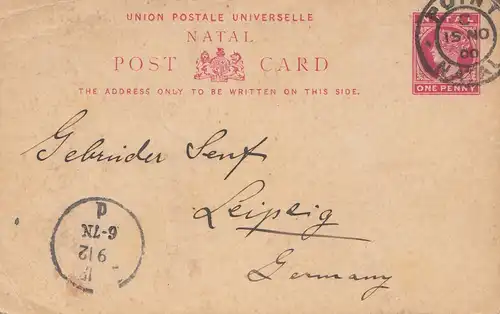 UNION POSTALE UNIVERSELLE
NATAL
POST CARD
THE ADDRESS ONLY TO BE WRITTEN ON THIS SIDE.
NATAL
ONE PENNY
POINT
15 NO
00
NATAL
Gebrüder Senf
Leipzig
Germany
9/12
6-7N
d